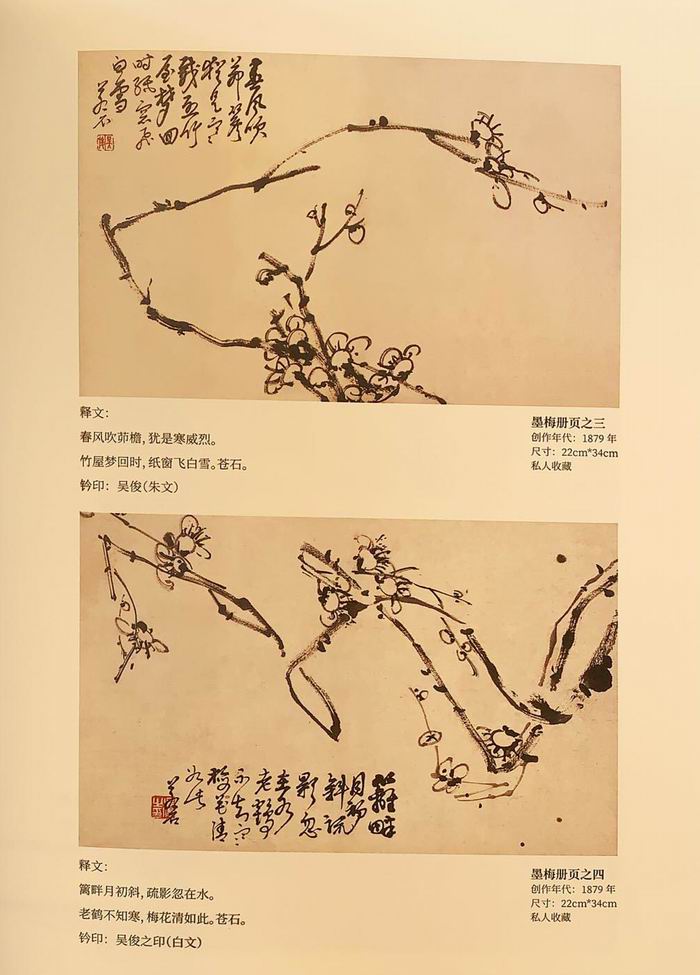 春风吹
茆檐
犹是寒
威烈竹
屋梦回
时纸窗飞
白雪
苍石
释文：
春风吹茆檐，犹是寒威烈。
竹屋梦回时，纸窗飞白雪。苍石。
钤印：吴俊（朱文）
墨梅册页之三
创作年代：1879 年
尺寸：22cm*34cm
私人收藏
篱畔
月初
斜疏
影忽
在水
老鹤
不知寒
梅花清
如此
苍石
释文：
篱畔月初斜，疏影忽在水。
老鹤不知寒，梅花清如此。苍石。
钤印：吴俊之印（白文）
墨梅册页之四
创作年代：1879 年
尺寸：22cm*34cm
私人收藏